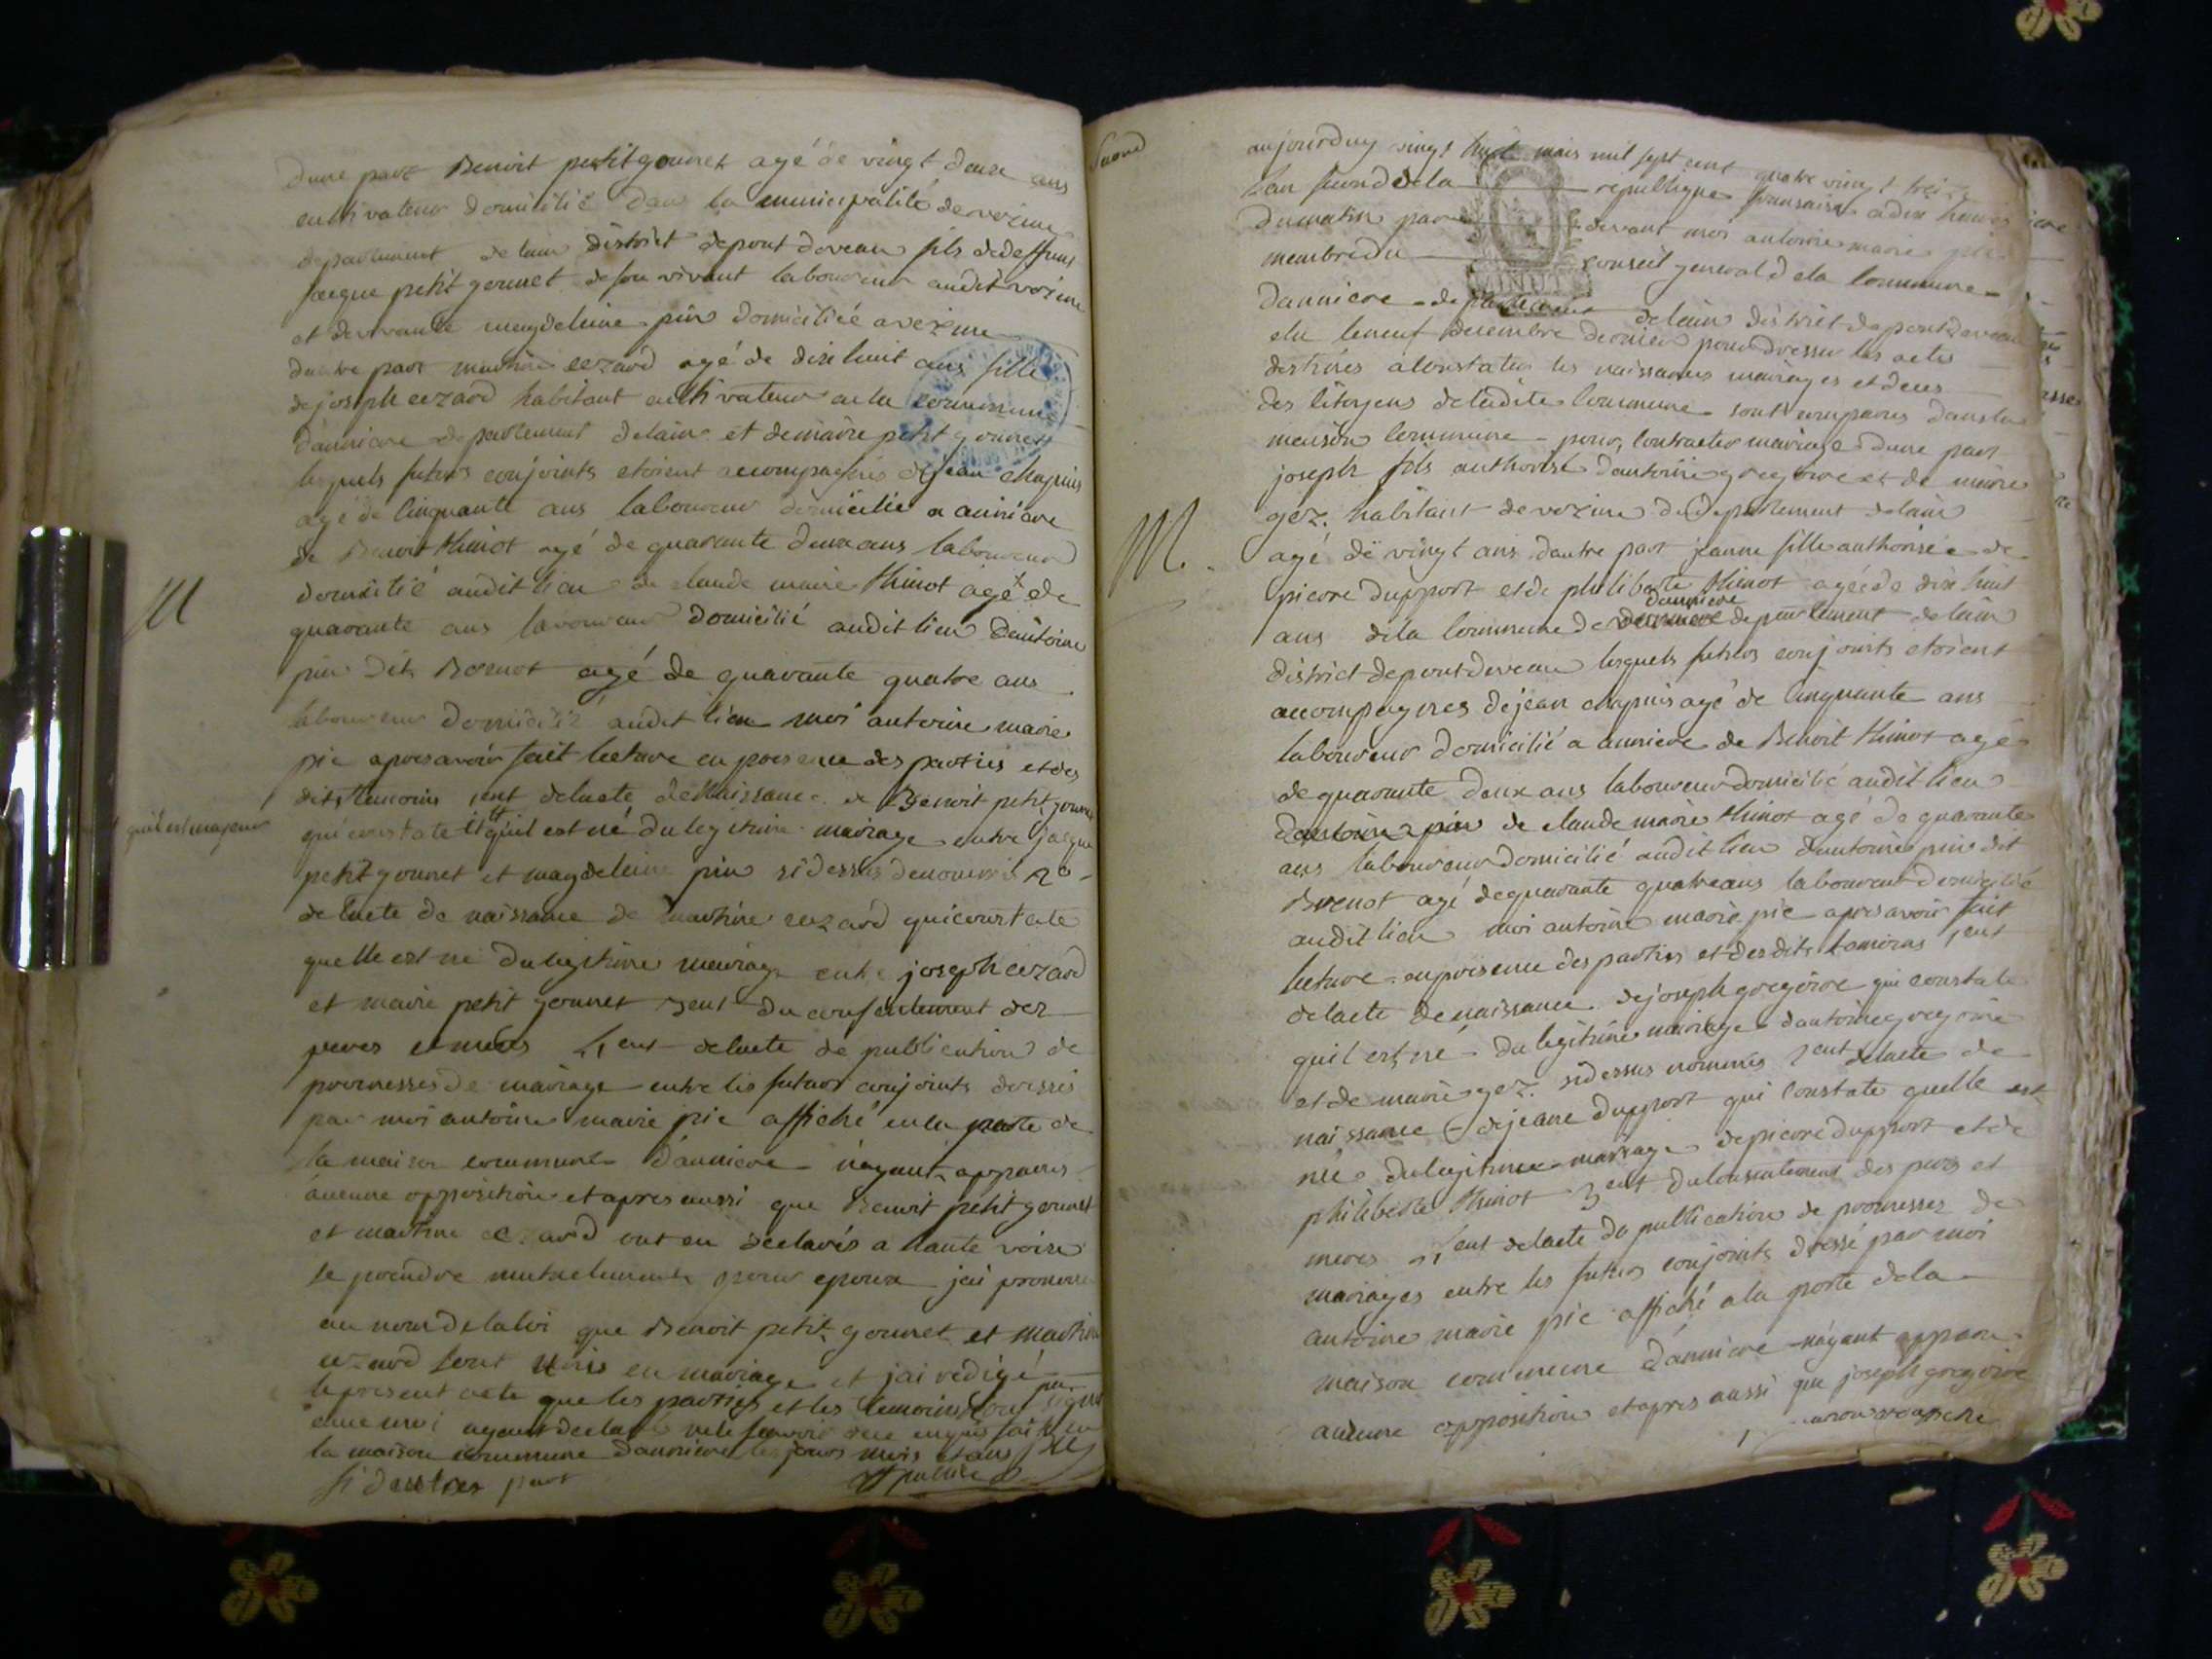 dune part Benoit petitgonnet agé de vingt deux ans
cultivateur domicilié dans la municipalité de vozime
departement de lain district depont deveau fils dedeffunt
jacque petit gonnet de son vivant laboureur audit vozime
et devivante magdeleine pin domiciliée a vezime
dautre part marthine cezard agé de dixhuit ans fille
de joseph cezard habitant cultivateur de la commune
danniere departement delain et demarie petit gonnet
lesquels futurs conjoints etoient accompagnés de jean chapuis
agé de cinquante ans laboureur domicilié a anniere
de Benoit thinot agé de quarante deux ans laboureur
domicilié audit lieu de claude marie thinot agé de
quarante ans laboureur domicilié audit lieu dantoine
pin dit Brenot agé de quarante quatre ans
laboureur domicilié audit lieu moi antoine marie
pic apres avoir fait lecture en presence des parties et des
dits temoins 1ent delacte de naissance de Benoit petit gonnet
quil est majeur
qui constate et quil est né du legitime mariage entre jacque
petit gonnet et magdeleine pin si dessus denommés 2o
de lacte de naissance de marthine cezard qui constate
quelle est né du legitime mariage entre joseph cezard
et marie petit gonnet 3ent du consentement des
peres et meres 4ent delacte de publication de
promesses de mariage entre les futurs conjoints dressés
par moi antoine marie pic affiché en la porte de
la maison commune danniere nayant apparus
aucune opposition et apres aussi que Benoit petit gonnet
et marthine cezard ont eu declarés a haute voix
se prendre mutuelement pour epoux jai prononcé
au nom de la loi que Benoit petit gonnet et marthine
cezard sont unis en mariage et jai rédigé
le present acte que les parties et les temoins nont pu signé
avec moi ayant declaré ne le savoir fait en
la maison commune danniere les jours mois et ans
si dautres part
M
Second
aujourduy vingt huit mars mil sept cent quatre vingt treize
lan second de la republique fransaise a dix heures
du matin par devant moi antoine marie pic
membre du conseil general de la commune
danniere departement delain district de pont deveau
elu le neuf decembre dernier pour dresser les actes
destinés a constater les naissances mariages et deces
des citoyens de ladite commune sont comparus dans la
maison commune pour contracter mariage dune part
joseph fils authorisé dantoine gregoire et de marie
gez habitant de vozime du departement delain
M.
agé de vingt ans dautre part jeanne fille authorisée de
pierre dupport et de philiberte thinot agée de dix huit
danniere
ans de la commune de departement delain
district de pont deveau lesquels futurs conjoints etoient
accompagnes de jean chapuis agé de cinquante ans
laboureur domicilié a anniere de Benoit thinot agé
de quarante deux ans laboureur domicilié audit lieu
dantoine pin de claude marie thinot agé de quarante
ans laboureur domicilié audit lieu dantoine pin dit
Brenot agé de quarante quatre ans laboureur domicilié
audit lieu moi antoine marie pic apres avoir fait
lecture en presence des parties et des dits temoins 1ent
delacte de naissance de joseph gregoire qui constate
quil est né du legitime mariage dantoine gregoire
et de marie gez sidessus nommés 2ent delacte de
naissance de jeane dupport qui constate quelle est
née du legitime mariage de pierre dupport et de
philiberte thinot 3ent du consentement des peres et
meres 4ent delacte de publication de promesses de
mariages entre les futurs conjoints dressé par moi
antoine marie pic affiché a la porte de la
maison commune danniere nayant apparu
aucune opposition et apres aussi que joseph gregoire